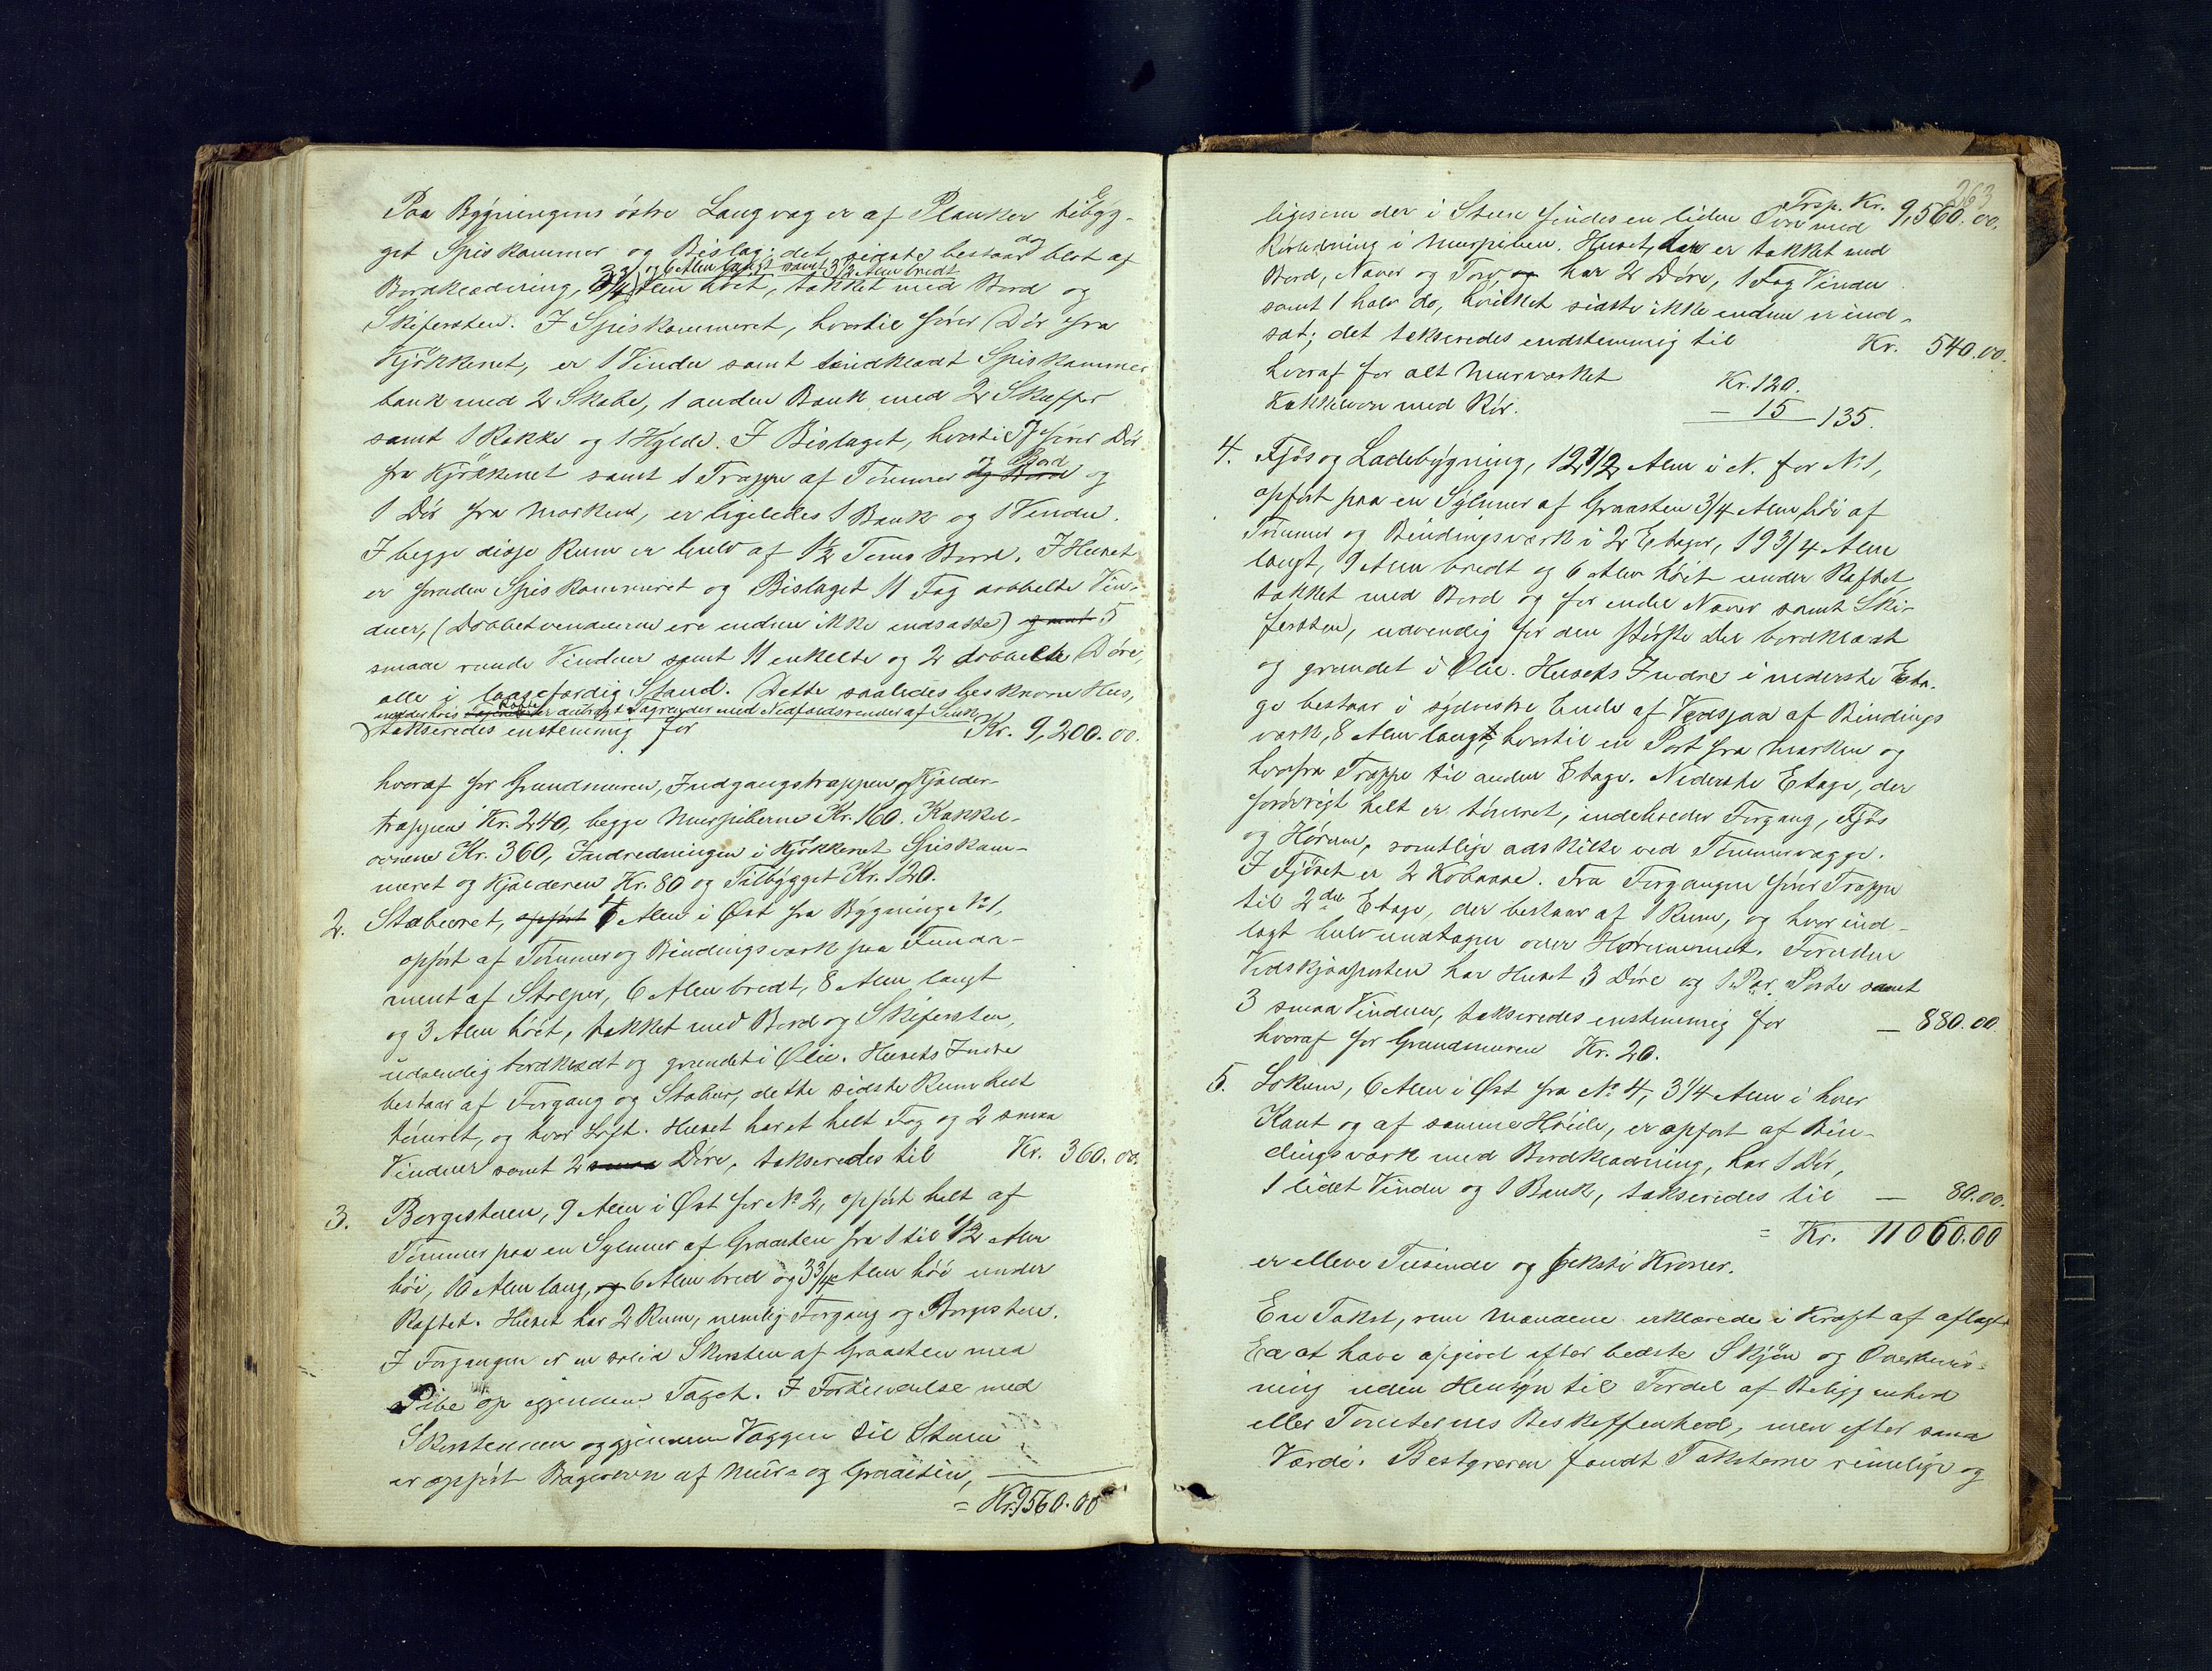 Paa Bygningens østre Langvæg er af Planker tilbyg-
get Spiskammer og Bislag; det sidste bestaar dog blot af
Bordklædning, 3 3/4 Alen høit, og 6 Alen langt samt 3 1/2 Alen bredt, tækket med Bord og
Skifersten. I Spiskammeret, hvortil fører Dør fra
Kjøkkenet, er 1 Vindu samt indklædt Spiskammer
bænk med 2 Skabe, 1 anden Bænk med 2 Skuffer
samt 1 Række og 1 Hylde. I Bislaget, hvortil fører Dør
fra Kjøkkenet samt 1 Trappe af Tømmer og Bord og
1 Dør fra Marken, er ligeledes 1 Bænk og 1 Vindu.
I begge disse Rum er Gulv af 1 1/2 Toms Bord. I Huset
er foruden Spiskammeret og Bislaget 11 Fag dobbelte Vin-
duer, (Dobbeltvinduerne ere endnu ikke indsatte) samt 5
smaa runde Vinduer samt 11 enkelte og 2 dobbelte Døre,
alle i laasefærdig Stand. Dette saaledes beskrevne Hus,
under hvis Tag er anbragt Tagrender med Nedfaldsrender af Sink
takseredes enstemmig for Kr. 9,200.00.
hvoraf for Grundmuren, Indgangstrappen og Kjælder-
trappen Kr. 240, begge Murpiberne Kr. 160. Kakkel-
ovnene Kr. 360, Indredningen i Kjøkkenet Spiskam-
meret og Kjælderen Kr. 80 og Tilbygget Kr. 120.
2. Stabburet, opført Alen i Øst fra Bygning No 1,
opført af Tømmer og Bindingsværk paa Funda-
ment af Stolper, 6 Alen bredt, 8 Alen langt
og 3 Alen høit, tækket med Bord og Skifersten,
udvendig bordklædt og grundet i Olie. Husets Indre
bestaar af Forgang og Stabur, dette sidste Rum helt
tømret, og hvor Loft. Huset har et helt Fag og 2 smaa
Vinduer samt 2 smaa Døre, takseredes til Kr. 360.00.
3. Borgestuen, 9 Alen i Øst for No 2, opført helt af
Tømmer paa en Sylmur af Graasten fra 1 til 1/2 Alen
høi, 10 Alen lang, og 6 Alen bred og 3 3/4 Alen høi under
Raftet. Huset har 2 Rum, nemlig Forgang og Borgestue.
I Forgangen er en solid Skorsten af Graasten med
Pibe op igjennem Taget. I Forbindelse med
Skorstenen og gjennem Væggen til Stuen
er opført Bagerovn af Mur- og Graasten,
= Kr. 9560.00
263
Trsp. Kr. 9,560.00.
ligesom der i Stuen findes en liden Ovn med
Rørledning i Murpiben. Huset, der er tækket med
Bord, Næver og Torv, og har 2 Døre, 1 Fag Vindu
samt 1 halv do, hvilket sidste ikke endnu er ind-
sat; det takseredes endstemmig til Kr. 540.00.
hvoraf for alt Murværket Kr. 120.
Kakkelovn med Rør. — 15 — 135.
4. Fjøs og Ladebygning, 12 1/2 Alen i N. for No 1,
opført paa en Sylmur af Graasten 3/4 Alen høi af
Tømmer og Bindingsværk i 2 Etager, 19 3/4 Alen
langt, 9 Alen bredt og 6 Alen høit under Raftet,
tækket med Bord og for endel Næver samt Ski-
fersten, udvendig for den største Del bordklædt
og grundet i Olie. Husets Indre i nederste Eta-
ge bestaar i sydvestre Ende af Vedsjaa af Bindings
værk, 8 Alen langt, hvortil en Port fra Marken og
hvorfra Trappe til anden Etage. Nederste Etage, der
forøvrigt helt er tømret, indeholder Forgang, Fjøs
og Hørum, samtlige adskilte ved Tømmervægge.
I Fjøset er 2 Kobaase. Fra Forgangen fører Trappe
til 2den Etage, der bestaar af 1 Rum, og hvor ind-
lagt Gulv undtagen over Hørummet. Foruden
Vedskjaaporten har Huset 3 Døre og 1 Par Porte samt
3 smaa Vinduer, takseredes enstemmig for — 880.00.
hvoraf for Grundmuren Kr. 20.
5. Lokum, 6 Alen i Øst fra No 4, 3 1/4 Alen i hver
Kant og af samme Høide, er opført af Bin-
dingsværk med Bordklædning, har 1 Dør,
1 lidet Vindu og 1 Bænk, takseredes til — 80.00.
= Kr. 11060.00
er elleve Tusinde og seksti Kroner.
En Takst, som Mændene erklærede i Kraft af aflagt
Ed at have opgivet efter bedste Skjøn og Overbevis-
ning uden Hensyn til Fordel af Beliggenhed
eller Tomternes Beskaffenhed, men efter sand
Værdi. Bestyreren fandt Taksterne rimelige og